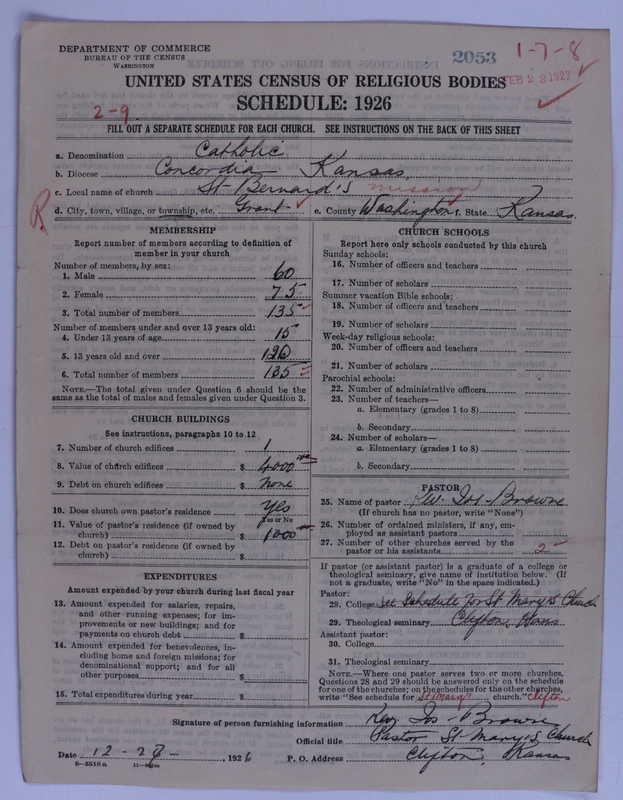 DEPARTMENT OF COMMERCE
BUREAU OF THE CENSUS
WASHINGTON
2053
1-7-8
FEB 23 1927
UNITED STATES CENSUS OF RELIGIOUS BODIES
SCHEDULE: 1926
2-9
FILL OUT A SEPARATE SCHEDULE FOR EACH CHURCH. SEE INSTRUCTIONS ON THE BACK OF THIS SHEET
a. Denomination Catholic
b. Diocese Concordia Kansas.
c. Local name of church St Bernard's mission
d. City, town, village, or township, etc. Grant e. County Washington f. State Kansas.
R
MEMBERSHIP
Report number of members according to definition of
member in your church
Number of members, by sex:
1. Male 60
2. Female 75
3. Total number of members 135
Number of members under and over 13 years old:
4. Under 13 years of age 15
5. 13 years old and over 120
6. Total number of members 135
NOTE.—The total given under Question 6 should be the
same as the total of males and females given under Question 3.
CHURCH BUILDINGS
See instructions, paragraphs 10 to 12
7. Number of church edifices 1
8. Value of church edifices $ 4000
9. Debt on church edifices $ none
10. Does church own pastor's residence yes
Yes or No
11. Value of pastor's residence (if owned by
church) $ 1000
12. Debt on pastor's residence (if owned by
church) $
EXPENDITURES
Amount expended by your church during last fiscal year
13. Amount expended for salaries, repairs,
and other running expenses; for im-
provements or new buildings; and for
payments on church debt $
14. Amount expended for benevolences, in-
cluding home and foreign missions; for
denominational support; and for all
other purposes $
15. Total expenditures during year $
CHURCH SCHOOLS
Report here only schools conducted by this church
Sunday schools:
16. Number of officers and teachers
17. Number of scholars
Summer vacation Bible schools:
18. Number of officers and teachers
19. Number of scholars
Week-day religious schools:
20. Number of officers and teachers
21. Number of scholars
Parochial schools:
22. Number of administrative officers
23. Number of teachers—
a. Elementary (grades 1 to 8)
b. Secondary
24. Number of scholars—
a. Elementary (grades 1 to 8)
b. Secondary
PASTOR
25. Name of pastor Rev. Jos. Browne
(If church has no pastor, write "None")
26. Number of ordained ministers, if any, em-
ployed as assistant pastors
27. Number of other churches served by the
pastor or his assistants 2
If pastor (or assistant pastor) is a graduate of a college or
theological seminary, give name of institution below. (If
not a graduate, write "No" in the space indicated.)
Pastor:
28. College See Schedule for St Mary's Church
29. Theological seminary Clifton, Kans
Assistant pastor:
30. College
31. Theological seminary
NOTE.—Where one pastor serves two or more churches,
Questions 28 and 29 should be answered only on the schedule
for one of the churches; on the schedules for the other churches,
write "See schedule for St Mary's church." Clifton
Signature of person furnishing information Rev. Jos. Browne
Official title Pastor St Mary's Church
Date 12-28-, 1926 P. O. Address Clifton, Kansas
8-5518 a